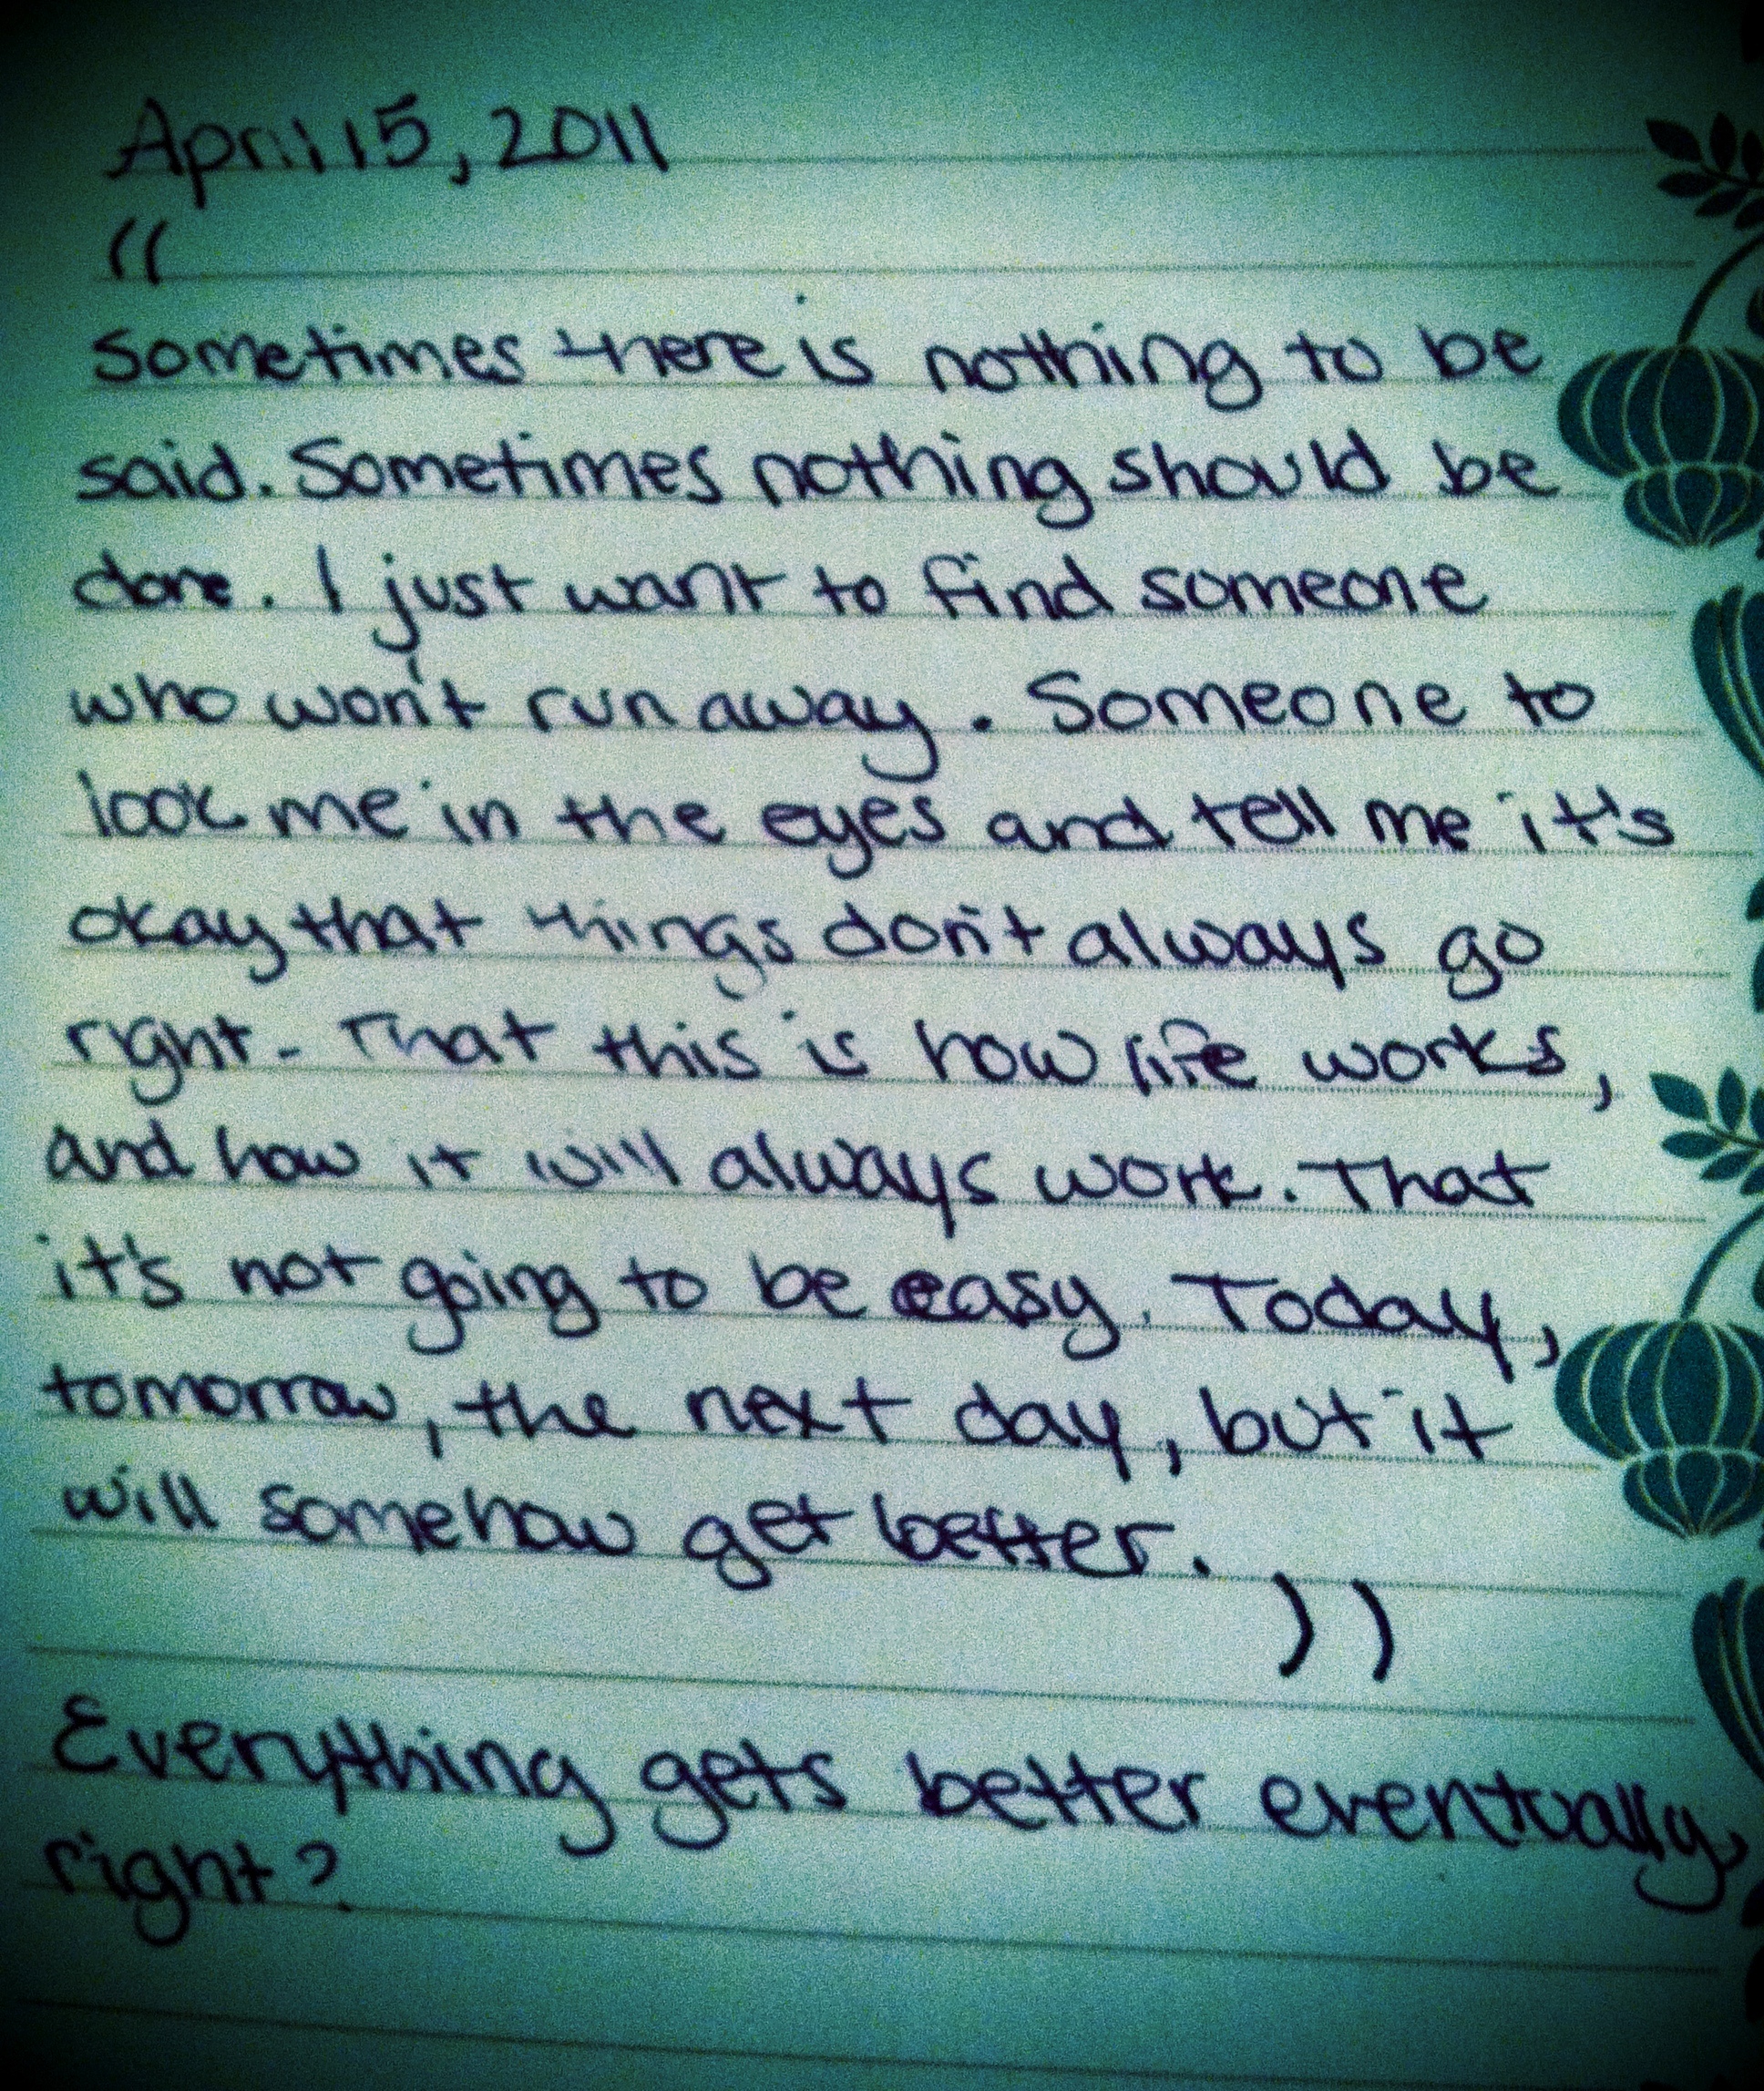 April 15, 2011
"
Sometimes there is nothing to be
said. Sometimes nothing should be
done. I just want to find someone
who won't run away. Someone to
look me in the eyes and tell me it's
okay that things don't always go
right. That this is how life works,
and how it will always work. That
it's not going to be easy. Today,
tomorrow, the next day, but it
will somehow get better.
"
Everything gets better eventually,
right?